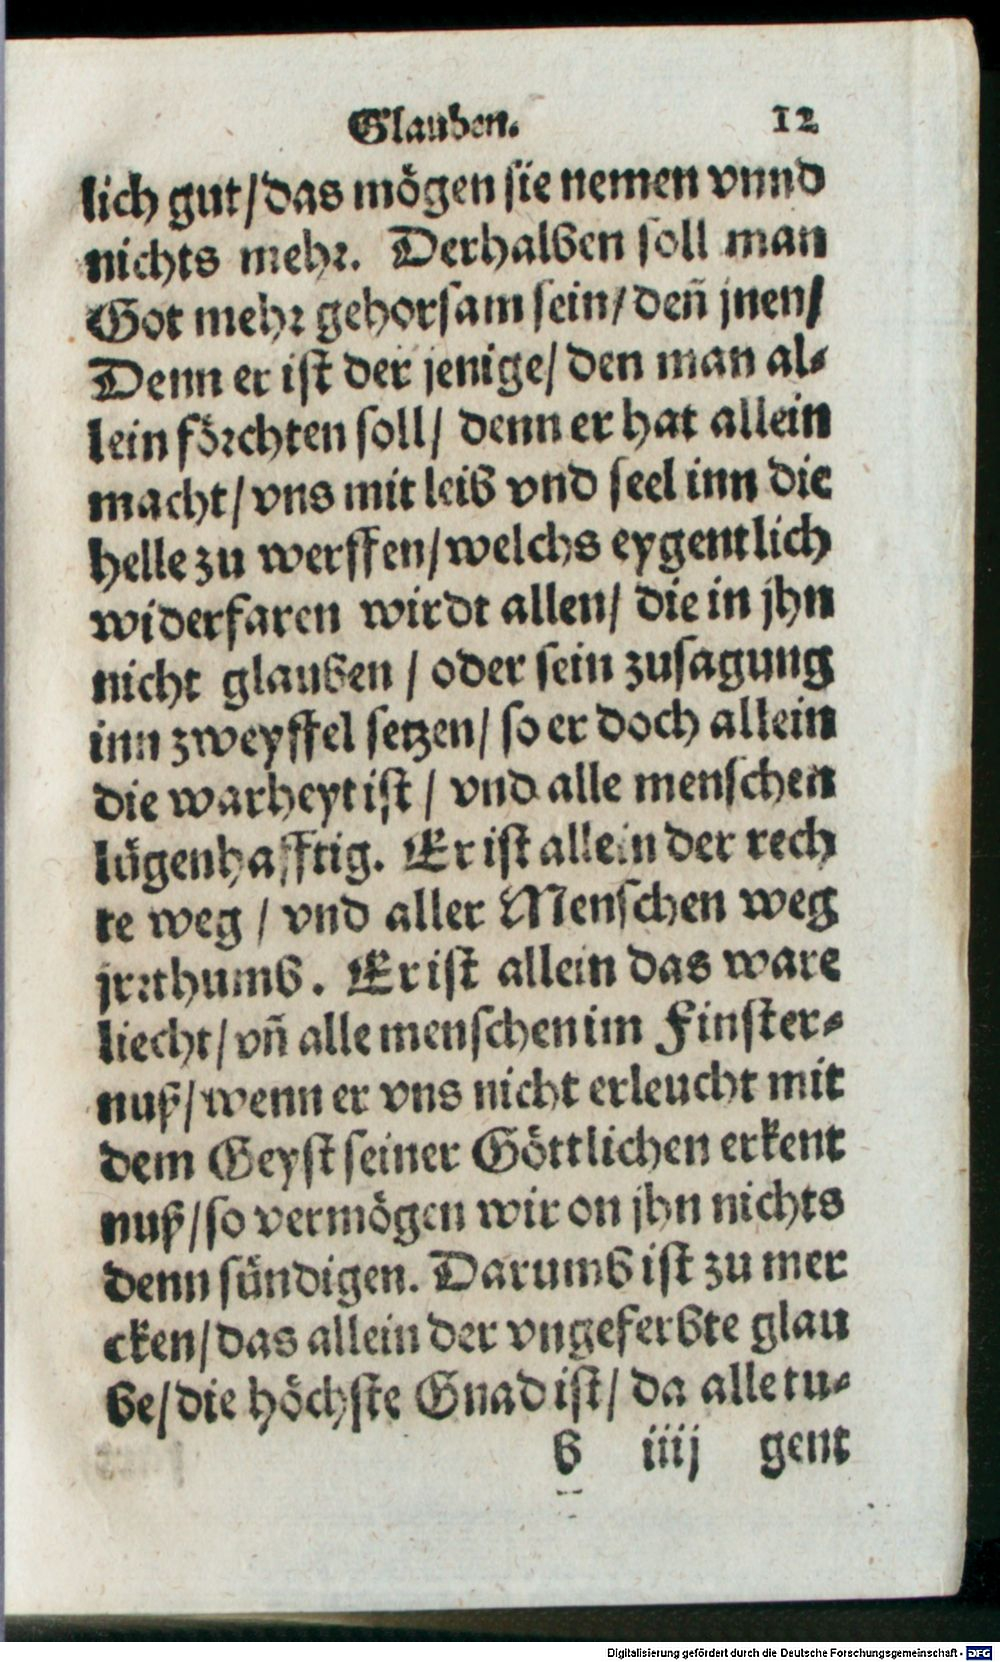 Glauben. 12
lich gut/das mögen sie nemen vnnd
nichts mehr. Derhalben soll man
Got mehr gehorsam sein/deñ jnen/
Denn er ist der jenige/ den man al-
lein förchten soll/ denn er hat allein
macht/vns mit leib vnd seel inn die
helle zu werffen/welchs eygentlich
widerfaren wirdt allen/ die in jhn
nicht glauben / oder sein zusagung
inn zweyffel setzen/ so er doch allein
die warheyt ist / vnd alle menschen
lügenhafftig. Er ist allein der rech
te weg / vnd aller Menschen weg
jrrthumb. Er ist allein das ware
liecht/vñ alle menschen im Finster-
nuß/wenn er vns nicht erleucht mit
dem Geyst seiner Göttlichen erkent
nuß/so vermögen wir on jhn nichts
denn sündigen. Darumb ist zu mer
cken/das allein der vngeferbte glau
be/die höchste Gnad ist/ da alle tu-
b iiij gent
Digitalisierung gefördert durch die Deutsche Forschungsgemeinschaft - DFG